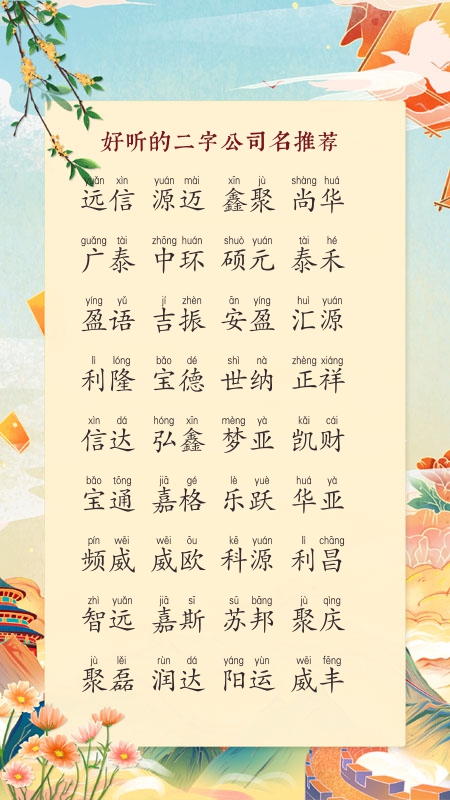 好听的二字公司名推荐
yuǎn xìn yuán mài xīn jù shàng huá
远信 源迈 鑫聚 尚华
guǎng tài zhōng huán shuò yuán tài hé
广泰 中环 硕元 泰禾
yíng yǔ jí zhèn ān yíng huì yuán
盈语 吉振 安盈 汇源
lì lóng bǎo dé shì nà zhèng xiáng
利隆 宝德 世纳 正祥
xìn dá hóng xīn mèng yà kǎi cái
信达 弘鑫 梦亚 凯财
bǎo tōng jiā gé lè yuè huá yà
宝通 嘉格 乐跃 华亚
pín wēi wēi ōu kē yuán lì chāng
频威 威欧 科源 利昌
zhì yuǎn jiā sī sū bāng jù qìng
智远 嘉斯 苏邦 聚庆
jù lěi rùn dá yáng yùn wēi fēng
聚磊 润达 阳运 威丰